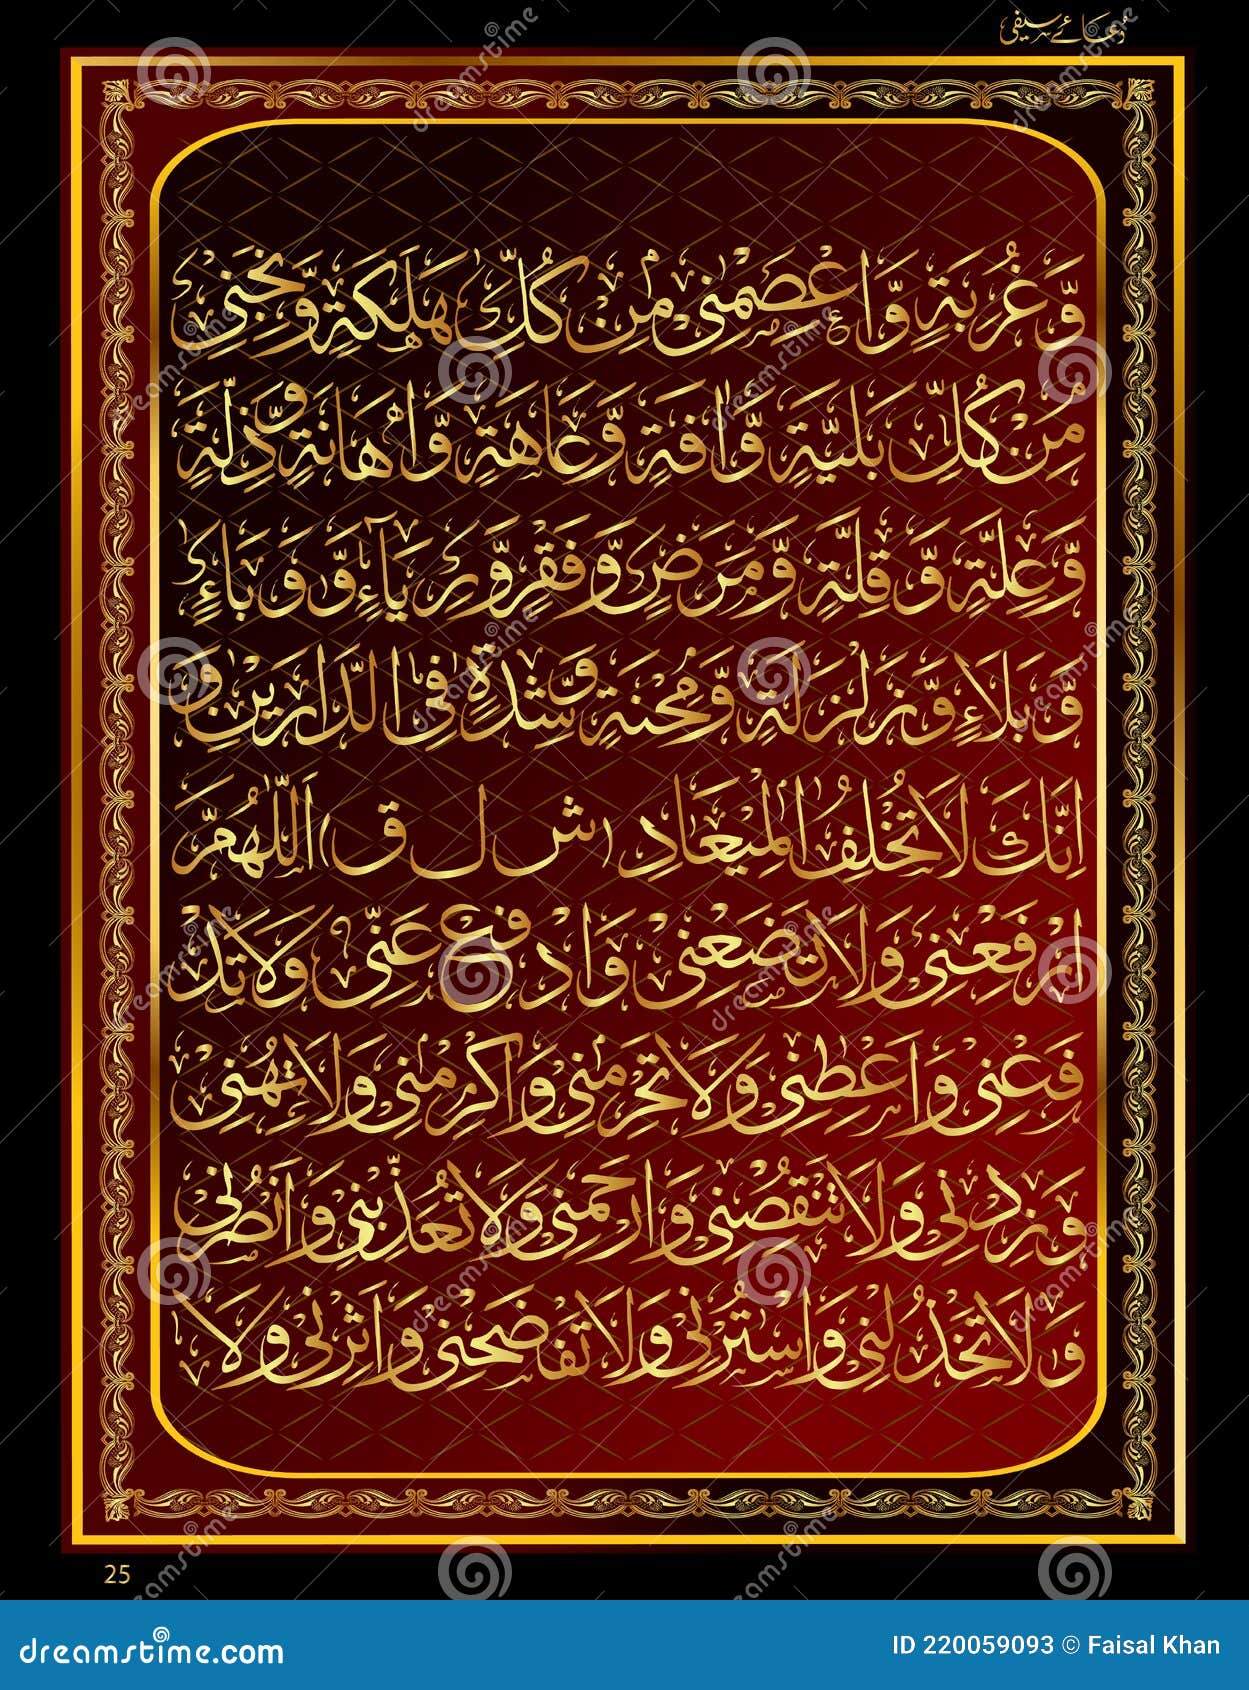 دُعائے سیفی
وَّغُرْبَةٍ وَّاعْصِمْنِیْ مِنْ كُلِّ هَلَكَةٍ وَّنَجِّنِیْ
مِنْ كُلِّ بَلِيَّةٍ وَّاٰفَةٍ وَّعَاهَةٍ وَّاِهَانَةٍ وَّذِلَّةٍ
وَّعِلَّةٍ وَّقِلَّةٍ وَّمَرَضٍ وَّفَقْرٍ وَّرِيَآءٍ وَّوَبَاءٍ
وَّبَلَاءٍ وَّزَلْزَلَةٍ وَّمِحْنَةٍ وَّشِدَّةٍ فِی الدَّارَيْنِ وَ
اِنَّكَ لَا تُخْلِفُ الْمِيْعَادِ (ش ل ق) اَللّٰهُمَّ
ارْفَعْنِیْ وَلَا تَضَعْنِیْ وَادْفَعْ عَنِّیْ وَلَا تَدْ
فَعْنِیْ وَاَعْطِنِیْ وَلَا تَحْرِمْنِیْ وَاَكْرِمْنِیْ وَلَا تُهِنِّیْ
وَزِدْنِیْ وَلَا تَنْقُصْنِیْ وَارْحَمْنِیْ وَلَا تُعَذِّبْنِیْ وَانْصُرْنِیْ
وَلَا تَخْذُلْنِیْ وَاسْتُرْنِیْ وَلَا تَفَاضَحْنِیْ وَاٰثِرْنِیْ وَلَا
25
dreamstime.com
ID 220059093 © Faisal Khan